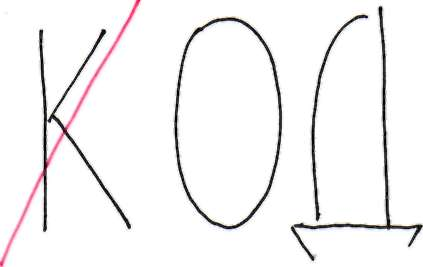 КОД